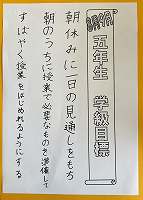 五年生 学級目標
朝休みに一日の見通しをもち
朝のうちに授業で必要なものを準備して
すばやく授業をはじめれるようにする